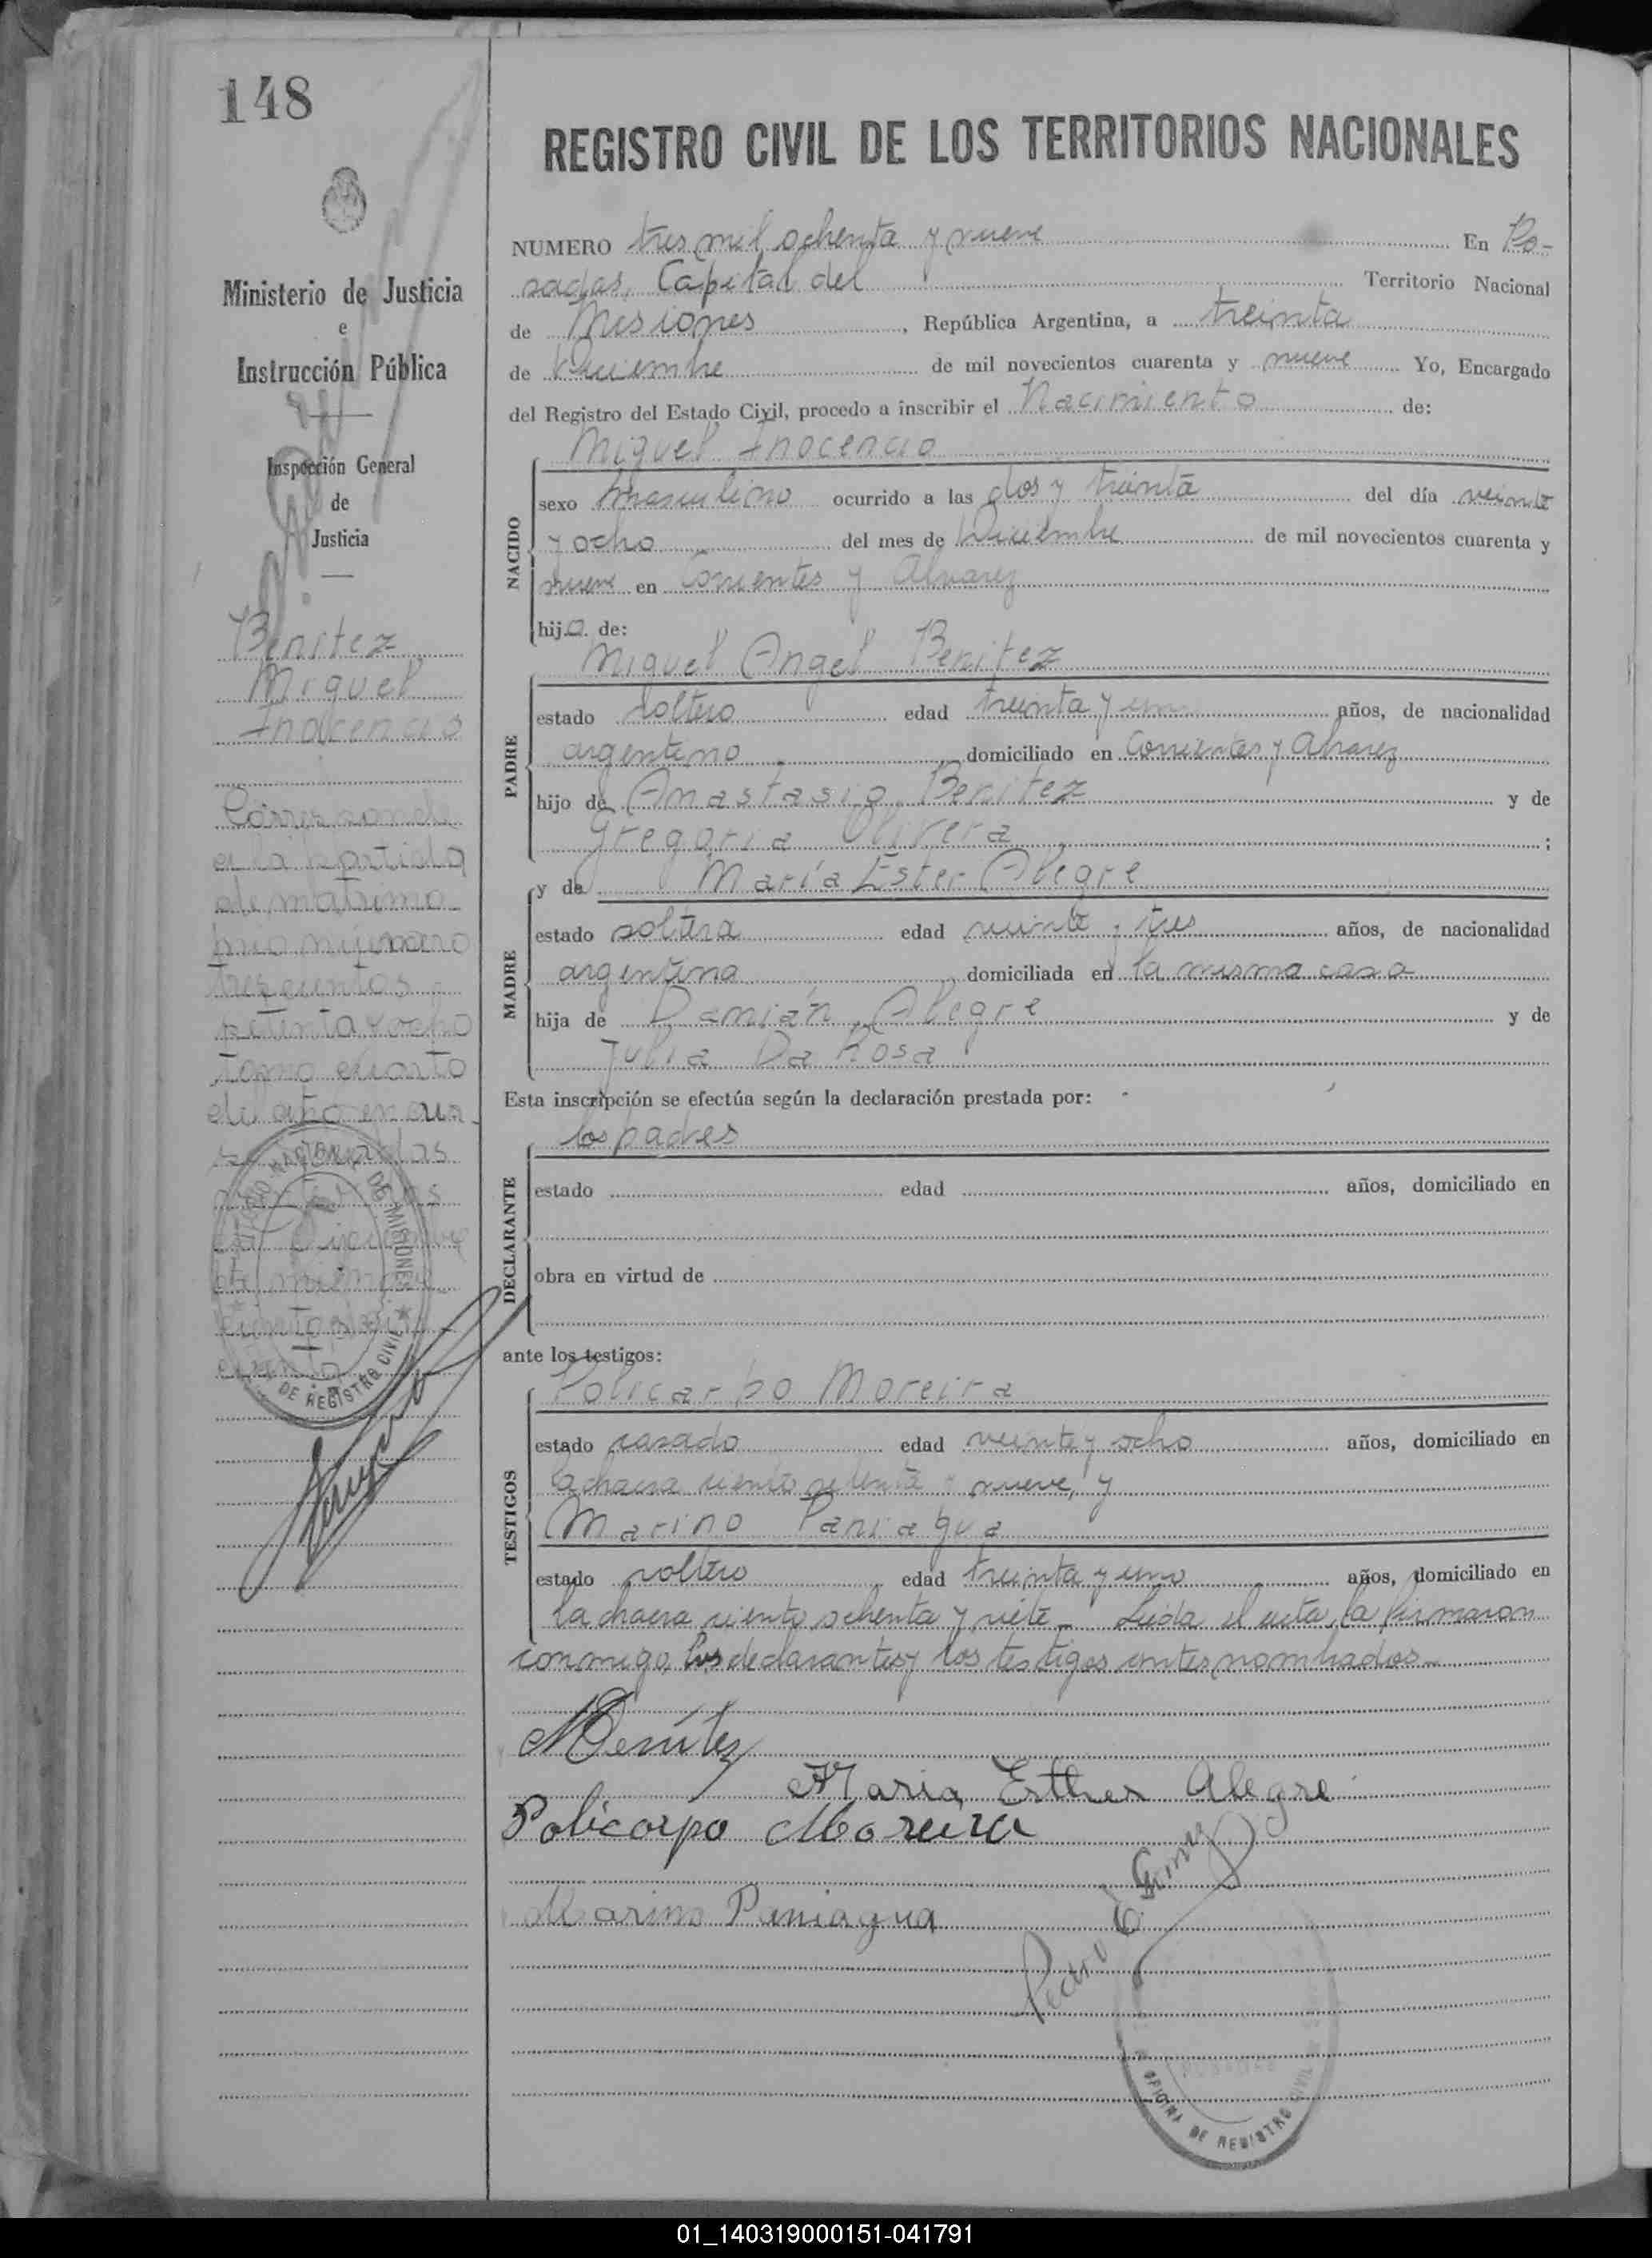 148
REGISTRO CIVIL DE LOS TERRITORIOS NACIONALES
Ministerio de Justicia
e
Instrucción Pública
Inspección General
de
Justicia
Benitez
Miguel
Inocencio
de matrimo
nio número
trescientos
setenta y ocho
tomo cuarto
del año en cur
NUMERO tres mil ochenta y nueve En Po-
sadas, Capital del Territorio Nacional
de Misiones, República Argentina, a treinta
de Diciembre de mil novecientos cuarenta y nueve Yo, Encargado
del Registro del Estado Civil, procedo a inscribir el Nacimiento de:
NACIDO
Miguel Inocencio
sexo masculino ocurrido a las dos y treinta del día veinte
y ocho del mes de Diciembre de mil novecientos cuarenta y
nueve en Corrientes y Alvarez
hijo de:
PADRE
Miguel Angel Benitez
estado soltero edad treinta y un años, de nacionalidad
argentino domiciliado en Corrientes y Alvarez
hijo de Anastasio Benitez y de
Gregoria Olivera ;
MADRE
y de María Ester Alegre
estado soltera edad veinte y tres años, de nacionalidad
argentina domiciliada en la misma casa
hija de Damián Alegre y de
Julia Da Rosa
Esta inscripción se efectúa según la declaración prestada por:
DECLARANTE
los padres
estado edad años, domiciliado en
obra en virtud de
ante los testigos:
TESTIGOS
Policarpo Moreira
estado casado edad veinte y ocho años, domiciliado en
la chacra ciento setenta y nueve, y
Marino Paniagua
estado soltero edad treinta y uno años, domiciliado en
la chacra ciento ochenta y siete. Leída el acta, la firmaron
conmigo, los declarantes y los testigos antes nombrados.
MBenítez
Maria Esther Alegre
Policarpo Moreira
Marino Paniagua
Pedro
OFICINA DE REGISTRO CIVIL
DE MISIONES
DE REGISTRO CIVIL
01_140319000151-041791